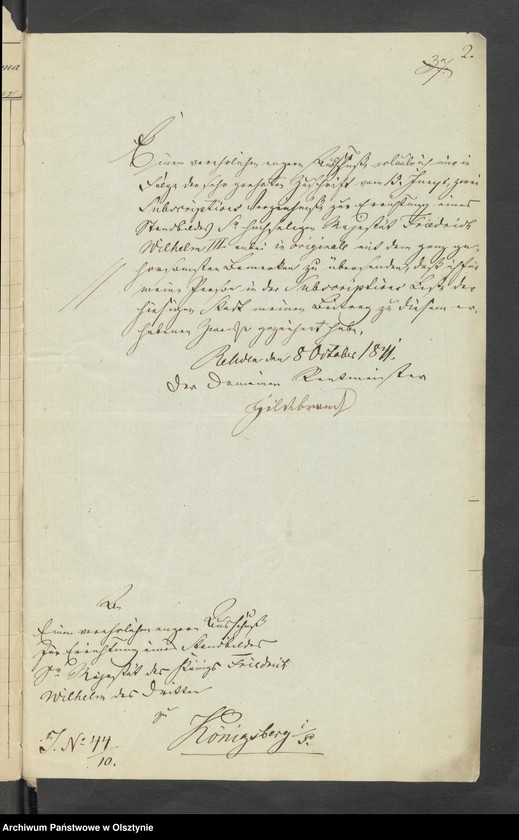 ma
2.
37.
Einem verehrlichen engern Ausschuße erlaube ich mir in
Folge der sehr geehrten Zuschrift vom 13. Juny, zwei
Subscriptions verzeichniße zur Errichtung eines
Standbildes Sr hochseligen Majestät Friedrich
Wilhelm III anbei in originali mit dem ganz ge-
horsamsten Bemerken zu übersenden, daß ich für
meine Person in der Subscriptions Liste der
hiesigen Stadt meinen Beitrag zu diesem er-
habenen Zwecke gezeichnet habe.
Rehden den 8 October 1841.
Der Domainen Rentmeister
Hildebrandt
An
Einen verehrlichen engern Ausschuß
zur Errichtung eines Standbildes
Sr Majestät des Königs Friedrich
Wilhelm des Dritten
zu
Königsberg i/P.
J. No 44
/10.
Archiwum Państwowe w Olsztynie